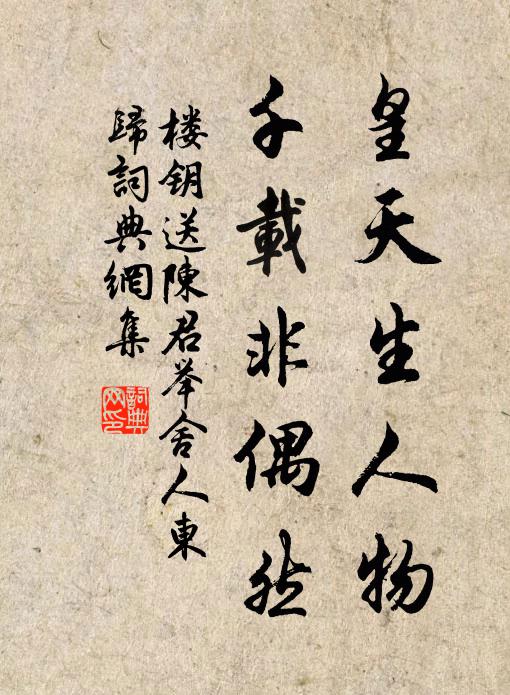 皇天生人物
千載非偶然
楼钥送陳君举舍人東
歸詞典網集
詞典
网印